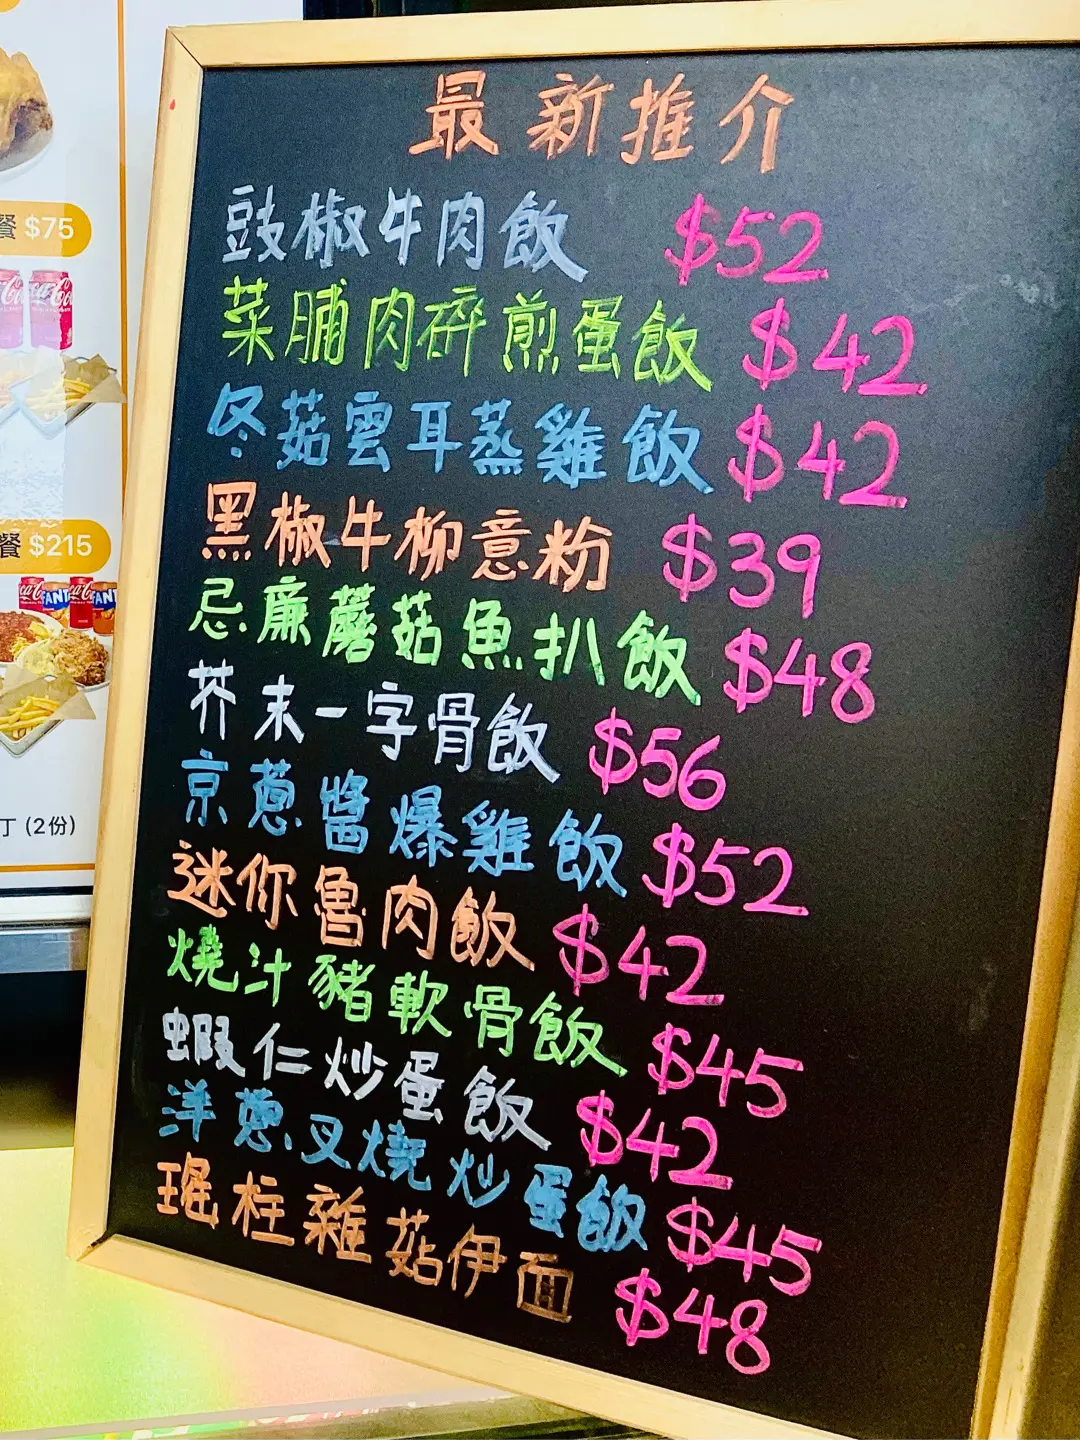 最新推介
豉椒牛肉飯 $52
菜脯肉碎煎蛋飯 $42
冬菇雲耳蒸雞飯 $42
黑椒牛柳意粉 $39
忌廉蘑菇魚扒飯 $48
芥末一字骨飯 $56
京蔥醬爆雞飯 $52
迷你魯肉飯 $42
燒汁豬軟骨飯 $45
蝦仁炒蛋飯 $42
洋蔥叉燒炒蛋飯 $45
瑤柱雜菇伊面 $48
餐 $75
餐 $215
丁 (2份)